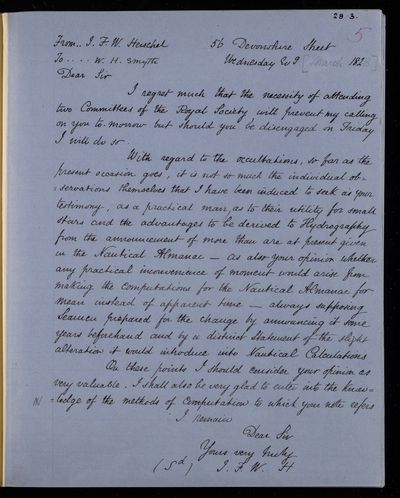 28.3.
5
From.. J. F. W. Herschel 56 Devonshire Street
To.... W. H. Smyth Wednesday Ev 9 [March 182
Dear Sir
I regret much that the necessity of attending
two Committees of the Royal Society will prevent my calling
on you to-morrow but should you be disengaged on Friday
I will do so.
With regard to the occultations, so far as the
present occasion goes, it is not so much the individual ob-
=servations themselves that I have been induced to seek as your
testimony, as a practical man, as to their utility for small
stars and the advantages to be derived to Hydrography
from the announcement of more than are at present given
in the Nautical Almanac — as also your opinion whether
any practical inconvenience of moment would arise from
making the computations for the Nautical Almanac for
mean instead of apparent time — always supposing
Seamen prepared for the change by announcing it some
years beforehand and by a distinct statement of the slight
alteration it would introduce into Nautical Calculations
On these points I should consider your opinion as
very valuable. I shall also be very glad to enter into the know=
=ledge of the methods of computation to which your note refers
I remain
Dear Sir
Yours very truly
(Sd) J. F. W. H